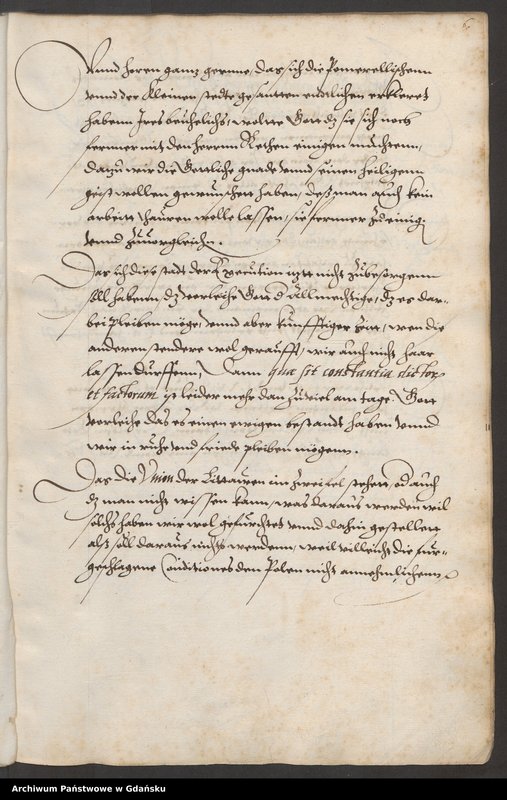 6
Vnnd heren gantz gernne, das sich die Pomerellischenn
vnnd der kleinen stedte gesantten entlichen erkleret
habenn Ires beuhelichs, wolte Gott dz sie sich noch
fernner mit den herrnn Rethen einigen muchtenn,
dartzu wir die Gottliche gnade vnnd seinen heiligenn
geist wollen gewunschen haben, deß man auch kein
arbeitt thauren wolle lassen, sie fernner zu einig
vnnd zuuorgleichn.
Das sich diese stadt der Execution itzt nicht zubesorgenn
soll habenn, dz vorleihe Gott d Allmechtige, dz es dar-
bei pleiben möge vnnd aber kunfftiger zeitt, wen die
anderen stendere wol geraufft, wir auch nicht haar
lassen durffenn, Dann qua sit constantia dictor
et factorum ist leider mehr dan zuuiel am tage, Gott
vorleihe das es einen ewigen bestandt haben vnnd
wir in ruhe vnd friede pleiben mögenn.
Das die Union der Littauren im zweifel stehett, od auch
dz man nicht wissen kann, was daraus werden wil
solchs haben wir wol gefurchtet vnnd dahin gestellett
alß soll daraus nichts werdenn, weil villeicht die fur-
geschlagene Conditiones den Polen nicht annehmlichenn
Archiwum Państwowe w Gdańsku